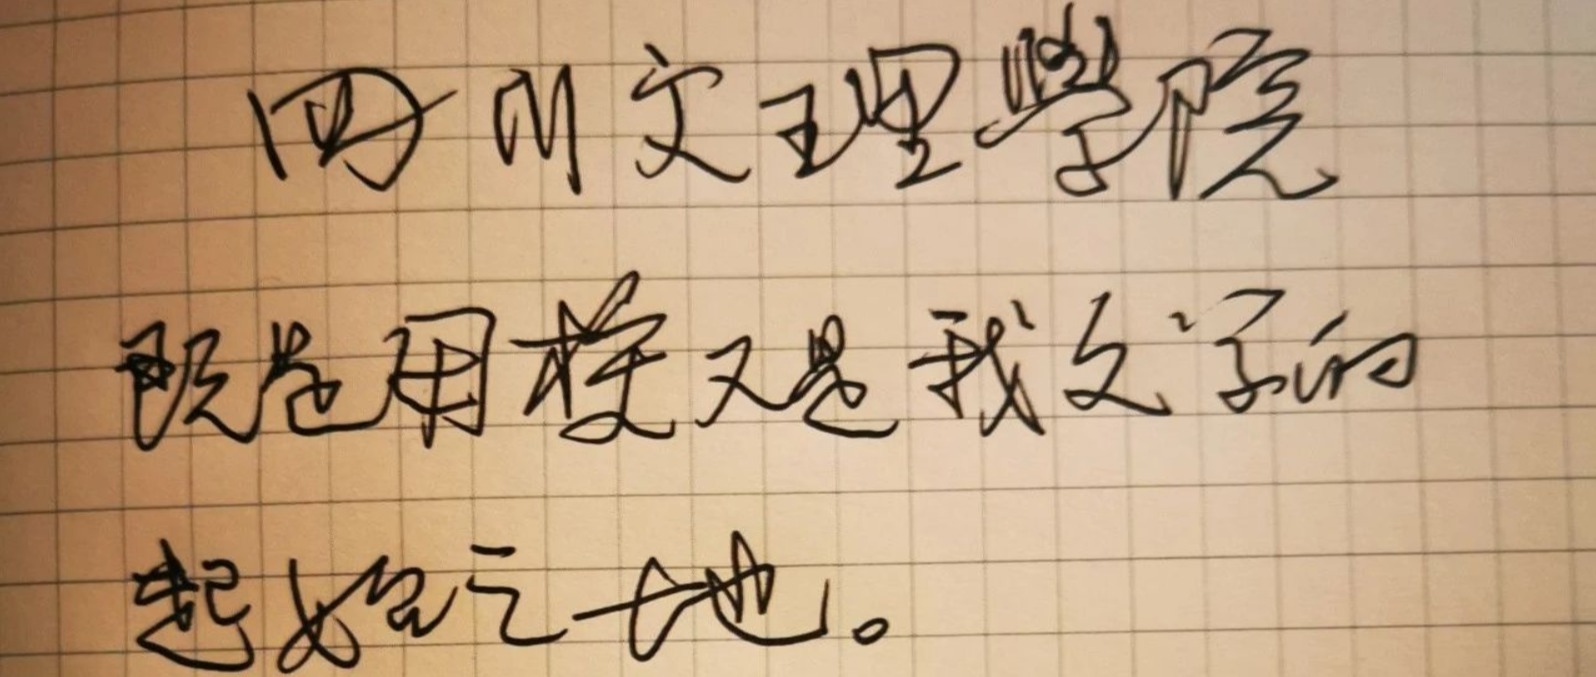 四川文理學院
既是母校又是我文字的
起始之地。